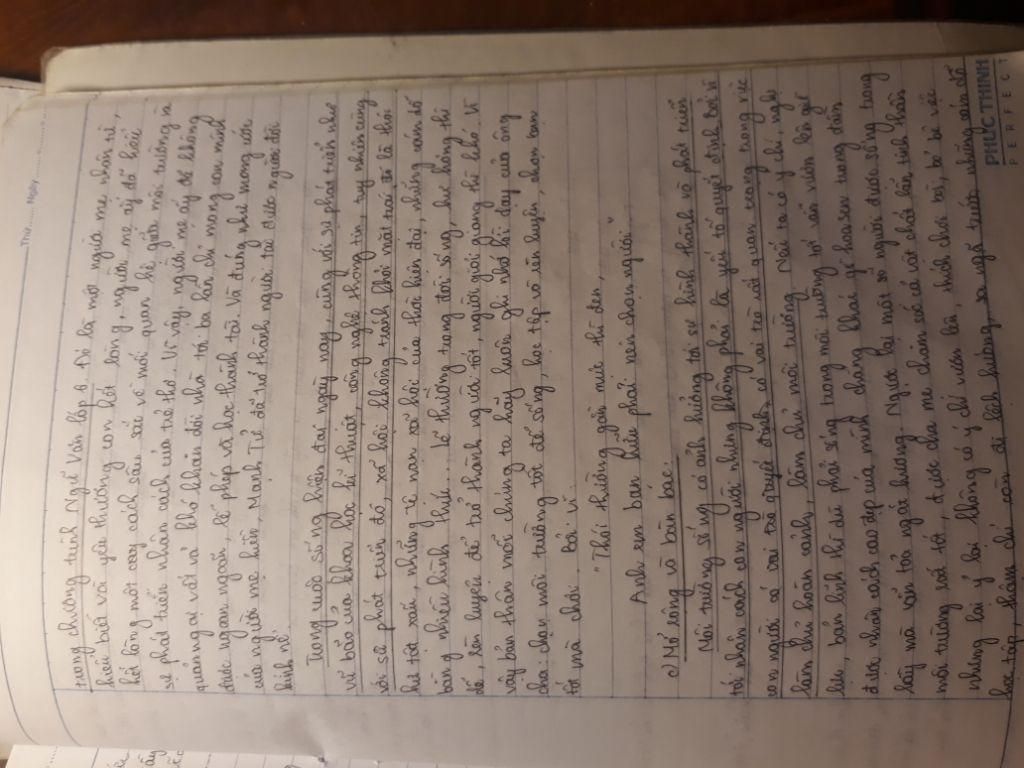 Thứ..... Ngày.....
trong chương trình Ngữ Văn lớp 6. Đó là một người mẹ nhân từ,
hiểu biết và yêu thương con hết lòng, người mẹ ấy đã hiểu
hết lòng một cách sâu sắc về mối quan hệ giữa môi trường và
sự phát triển nhân cách của trẻ thơ. Vì vậy, người mẹ ấy đã không
quản ngại vất vả khó khăn dời nhà tới ba lần chỉ mong con mình
được ngoan ngoãn, lễ phép và học thành tài. Và đúng như mong ước
của người mẹ hiền, Mạnh Tử đã trở thành người tài được người đời
kính nể.
Trong cuộc sống hiện đại ngày nay, cùng với sự phát triển như
vũ bão của khoa học kĩ thuật, công nghệ thông tin, tuy nhiên cùng
với sự phát triển đó, xã hội không tránh khỏi mặt trái đó là thói
hư tật xấu, những tệ nạn xã hội của thời hiện đại, những cám dỗ
bằng nhiều hình thức... Lẽ thường trong đời sống, hư hỏng thì
dễ, rèn luyện để trở thành người tốt, người giỏi giang thì khó. Vì
vậy bản thân mỗi chúng ta hãy luôn ghi nhớ lời dạy của ông
cha: chọn môi trường tốt để sống, học tập và rèn luyện, chọn bạn
tốt mà chơi. Bởi vì:
"Thói thường gần mực thì đen,
Anh em bạn hữu phải nên chọn người"
c) Mở rộng và bàn bác:
Môi trường sống có ảnh hưởng tới sự hình thành và phát triển
tới nhân cách con người nhưng không phải là yếu tố quyết định bởi vì
con người có vai trò quyết định, có vai trò rất quan trọng trong việc
làm chủ hoàn cảnh, làm chủ môi trường. Nếu ta có ý chí, nghị
lực, bản lĩnh thì dù phải sống trong môi trường tối vẫn vươn lên giữ
được nhân cách cao đẹp của mình chẳng khác gì hoa sen trong đầm
lầy mà vẫn tỏa ngát hương. Ngược lại một số người được sống trong
môi trường rất tốt, được cha mẹ chăm sóc cả vật chất lẫn tinh thần
nhưng lại ỷ lại không có ý chí vươn lên, thích chơi bời, bỏ bê việc
học tập, thậm chí còn đi lệch hướng, sa ngã trước những cám dỗ
PHUC THINH
PERFECT